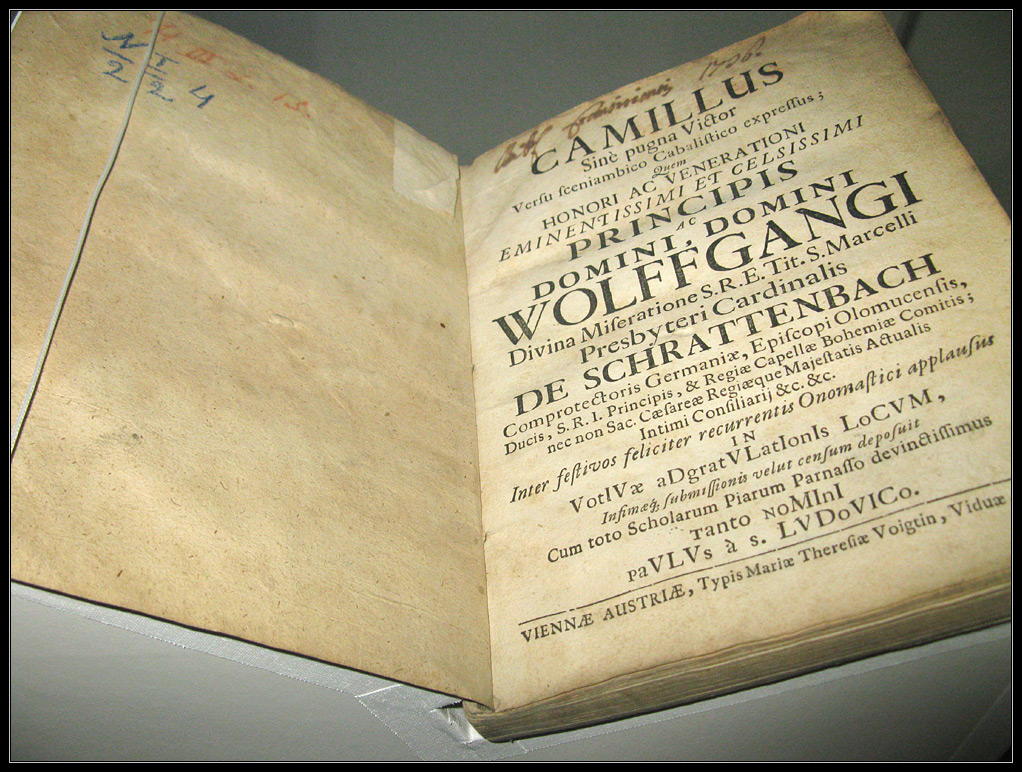 N/2 I/2 4
1736.
CAMILLUS
Sinè pugna Victor
Versu sceniambico Cabalistico expressus;
Quem
HONORI AC VENERATIONI
EMINENTISSIMI ET CELSISSIMI
PRINCIPIS
AC
DOMINI, DOMINI
WOLFFGANGI
Divina Miseratione S. R. E. Tit. S. Marcelli
Presbyteri Cardinalis
DE SCHRATTENBACH
Comprotectoris Germaniæ, Episcopi Olomucensis,
Ducis, S. R. I. Principis, & Regiæ Capellæ Bohemiæ Comitis;
nec non Sac. Cæsareæ Regiæque Majestatis Actualis
Intimi Consiliarij &c. &c.
Inter festivos feliciter recurrentis Onomastici applausus
IN
VotIVæ aDgratVLatIonIs LoCVM,
Infimæq; submissionis velut censum deposuit
Cum toto Scholarum Piarum Parnasso devinctissimus
Tanto noMInI
paVLVs à s. LVDoVICo.
VIENNÆ AUSTRIÆ, Typis Mariæ Theresiæ Voigtin, Viduæ